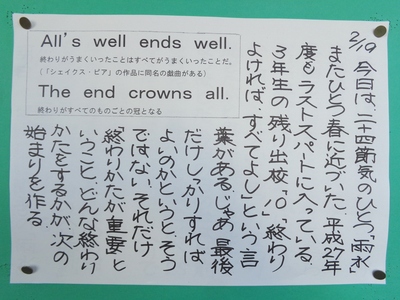 2/19 今日は、二十四節気のひとつ「雨水」
またひとつ春に近づいた。平成27年
度もラストスパートに入っている。
3年生の残り出校、10。「終わり
よければ、すべてよし」という言
葉がある。じゃあ、最後
だけしっかりすれば
よいのかというと、そう
ではない。それだけ
終わりかたが重要と
いうこと。どんな終わり
かたをするかが、次の
始まりを作る。
All's well ends well.
終わりがうまくいったことはすべてがうまくいったことだ。
(「シェイクス・ピア」の作品に同名の戯曲がある)
The end crowns all.
終わりがすべてのものごとの冠となる